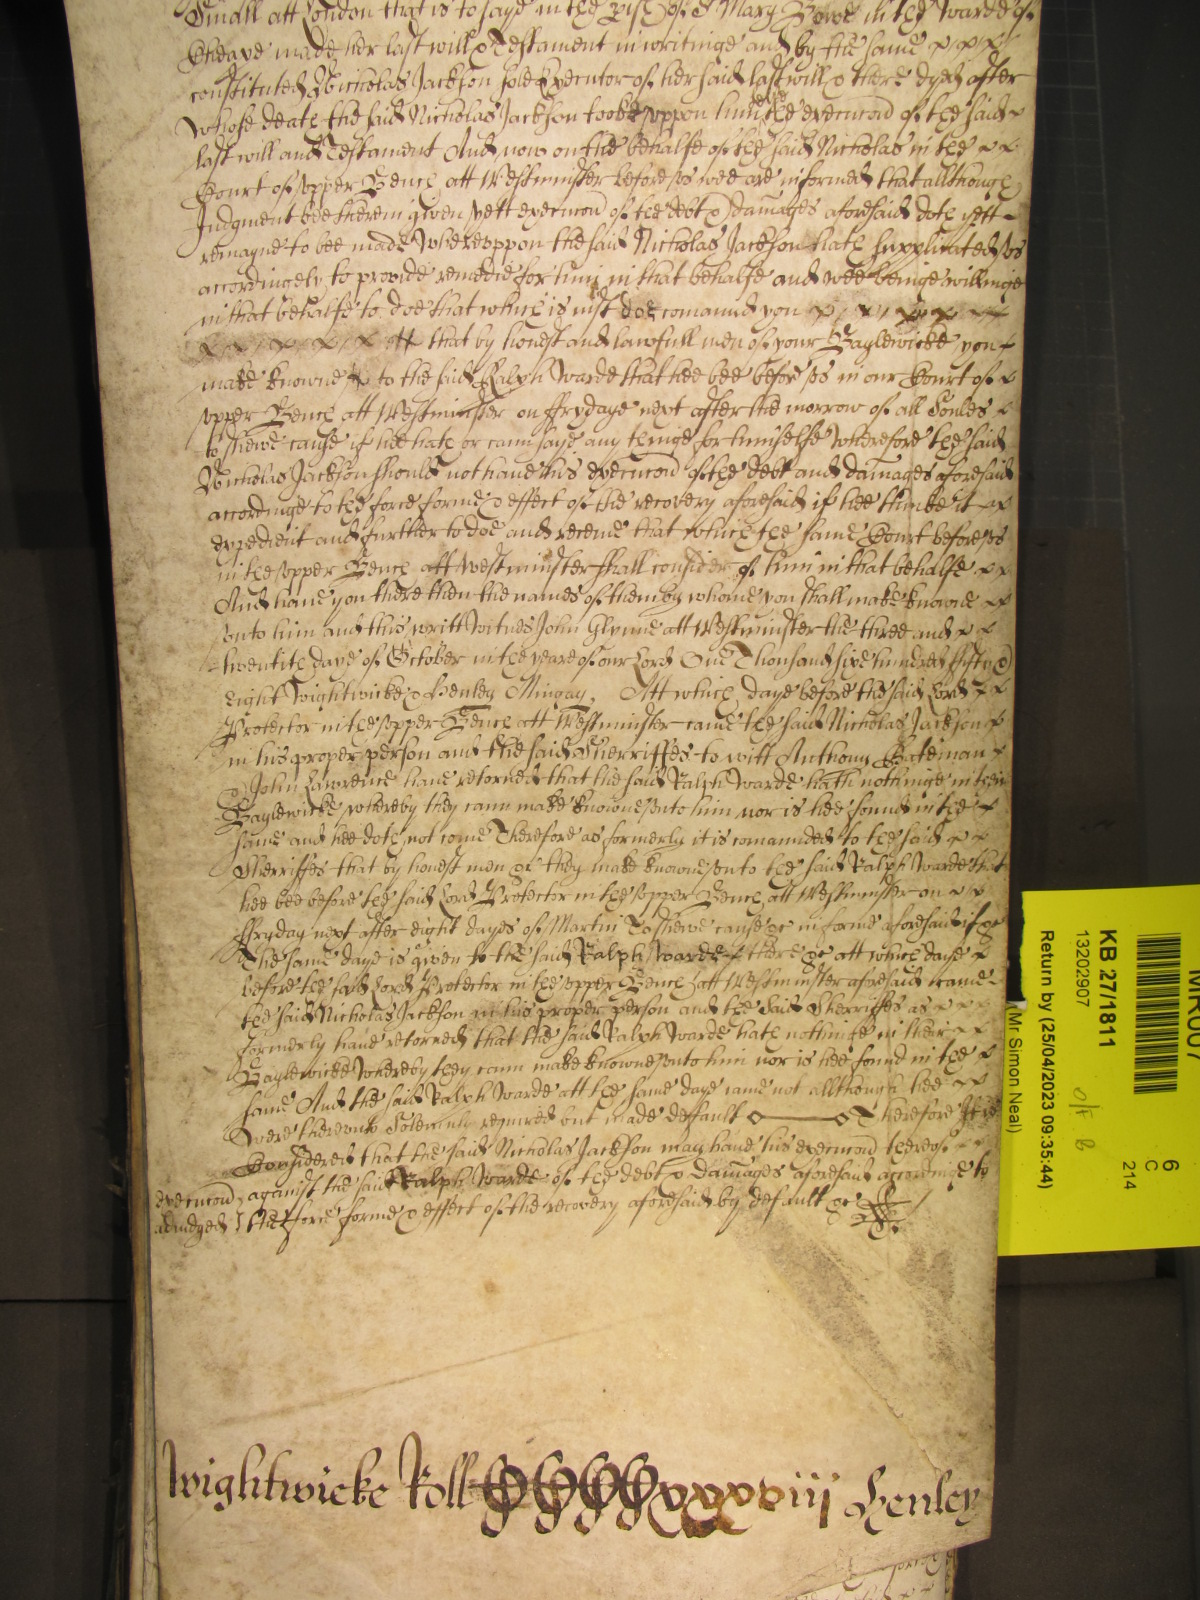 Small att London that is to saye in the pish of St Mary Bowe in the warde of
Cheape made her last will & Testament in writinge and by the same
constituted Nicholas Jackson sole Executor of her said last will & there dyed after
whose death the said Nicholas Jackson tooke uppon himselfe the execucon of the said
last will and Testament And now on the behalfe of the said Nicholas in the
Court of upper Bench att Westminster before us wee are informed that allthough
Judgment bee therein given yett execucon of the debt & damages aforesaid doth yett
remayne to bee made whereuppon the said Nicholas Jackson hath supplicated us
accordingely to provide remedie for him in that behalfe and wee beinge willinge
in that behalfe to doe that which is just doe comannd you
that by honest and lawfull men of your Baylewicke you
make knowne to the said Ralph Warde that hee bee before us in our Court of
upper Bench att Westminster on ffrydaye next after the morrow of all Soules
to shewe cause if hee hath or cann saye any thinge for himselfe wherefore the said
Nicholas Jackson should not have his execucon of the debt and damages aforesaid
accordinge to the force forme & effect of the recovery aforesaid if hee thinke it
expedient and further to doe and receive that which the same Court before us
in the upper Bench att Westminster shall consider of him in that behalfe
And have you there then the names of them by whome you shall make knowne
unto him and this writt Witnes John Glynne att Westminster the three and
twentith daye of October in the yeare of our Lord One Thousand six hundred fifty &
eight Wightwicke & Henley Mingay. Att which daye before the said Lord
Protector in the upper Bench att Westminster came the said Nicholas Jackson
in his proper person and the said Sherriffes to witt Anthony Bateman
& John Lawrence have retorned that the said Ralph Warde hath nothinge in their
Baylewicke whereby they cann make knowne unto him nor is hee found in the
same and hee doth not come Therefore as formerly it is comannded to the said
Sherriffes that by honest men &c they make knowne unto the said Ralph Warde that
hee bee before the said Lord Protector in the upper Bench att Westminster on
ffryday next after eight dayes of Martin To shewe cause &c in forme aforesaid if &c
The same daye is given to the said Ralph Warde there &c att which daye
before the said Lord Protector in the upper Bench att Westminster aforesaid came
the said Nicholas Jackson in his proper person and the said Sherriffes as
formerly have retorned that the said Ralph Warde hath nothinge in their
Baylewicke whereby they cann make knowne unto him nor is hee found in the
same And the said Ralph Warde att the same daye came not allthough hee
were thereunto Solemnly required but made default Therefore It is
Considered that the said Nicholas Jackson may have his execucon thereof
execucon adjudged
against the said Ralph Warde of the debt & damages aforesaid accordinge to
the force forme & effect of the recovery aforesaid by default &c
Wightwicke Roll CCCCxxxxviij Henley
MR007
6
C
214
KB 27/1811
13202907
Return by (25/04/2023 09:35:44)
(Mr Simon Neal)